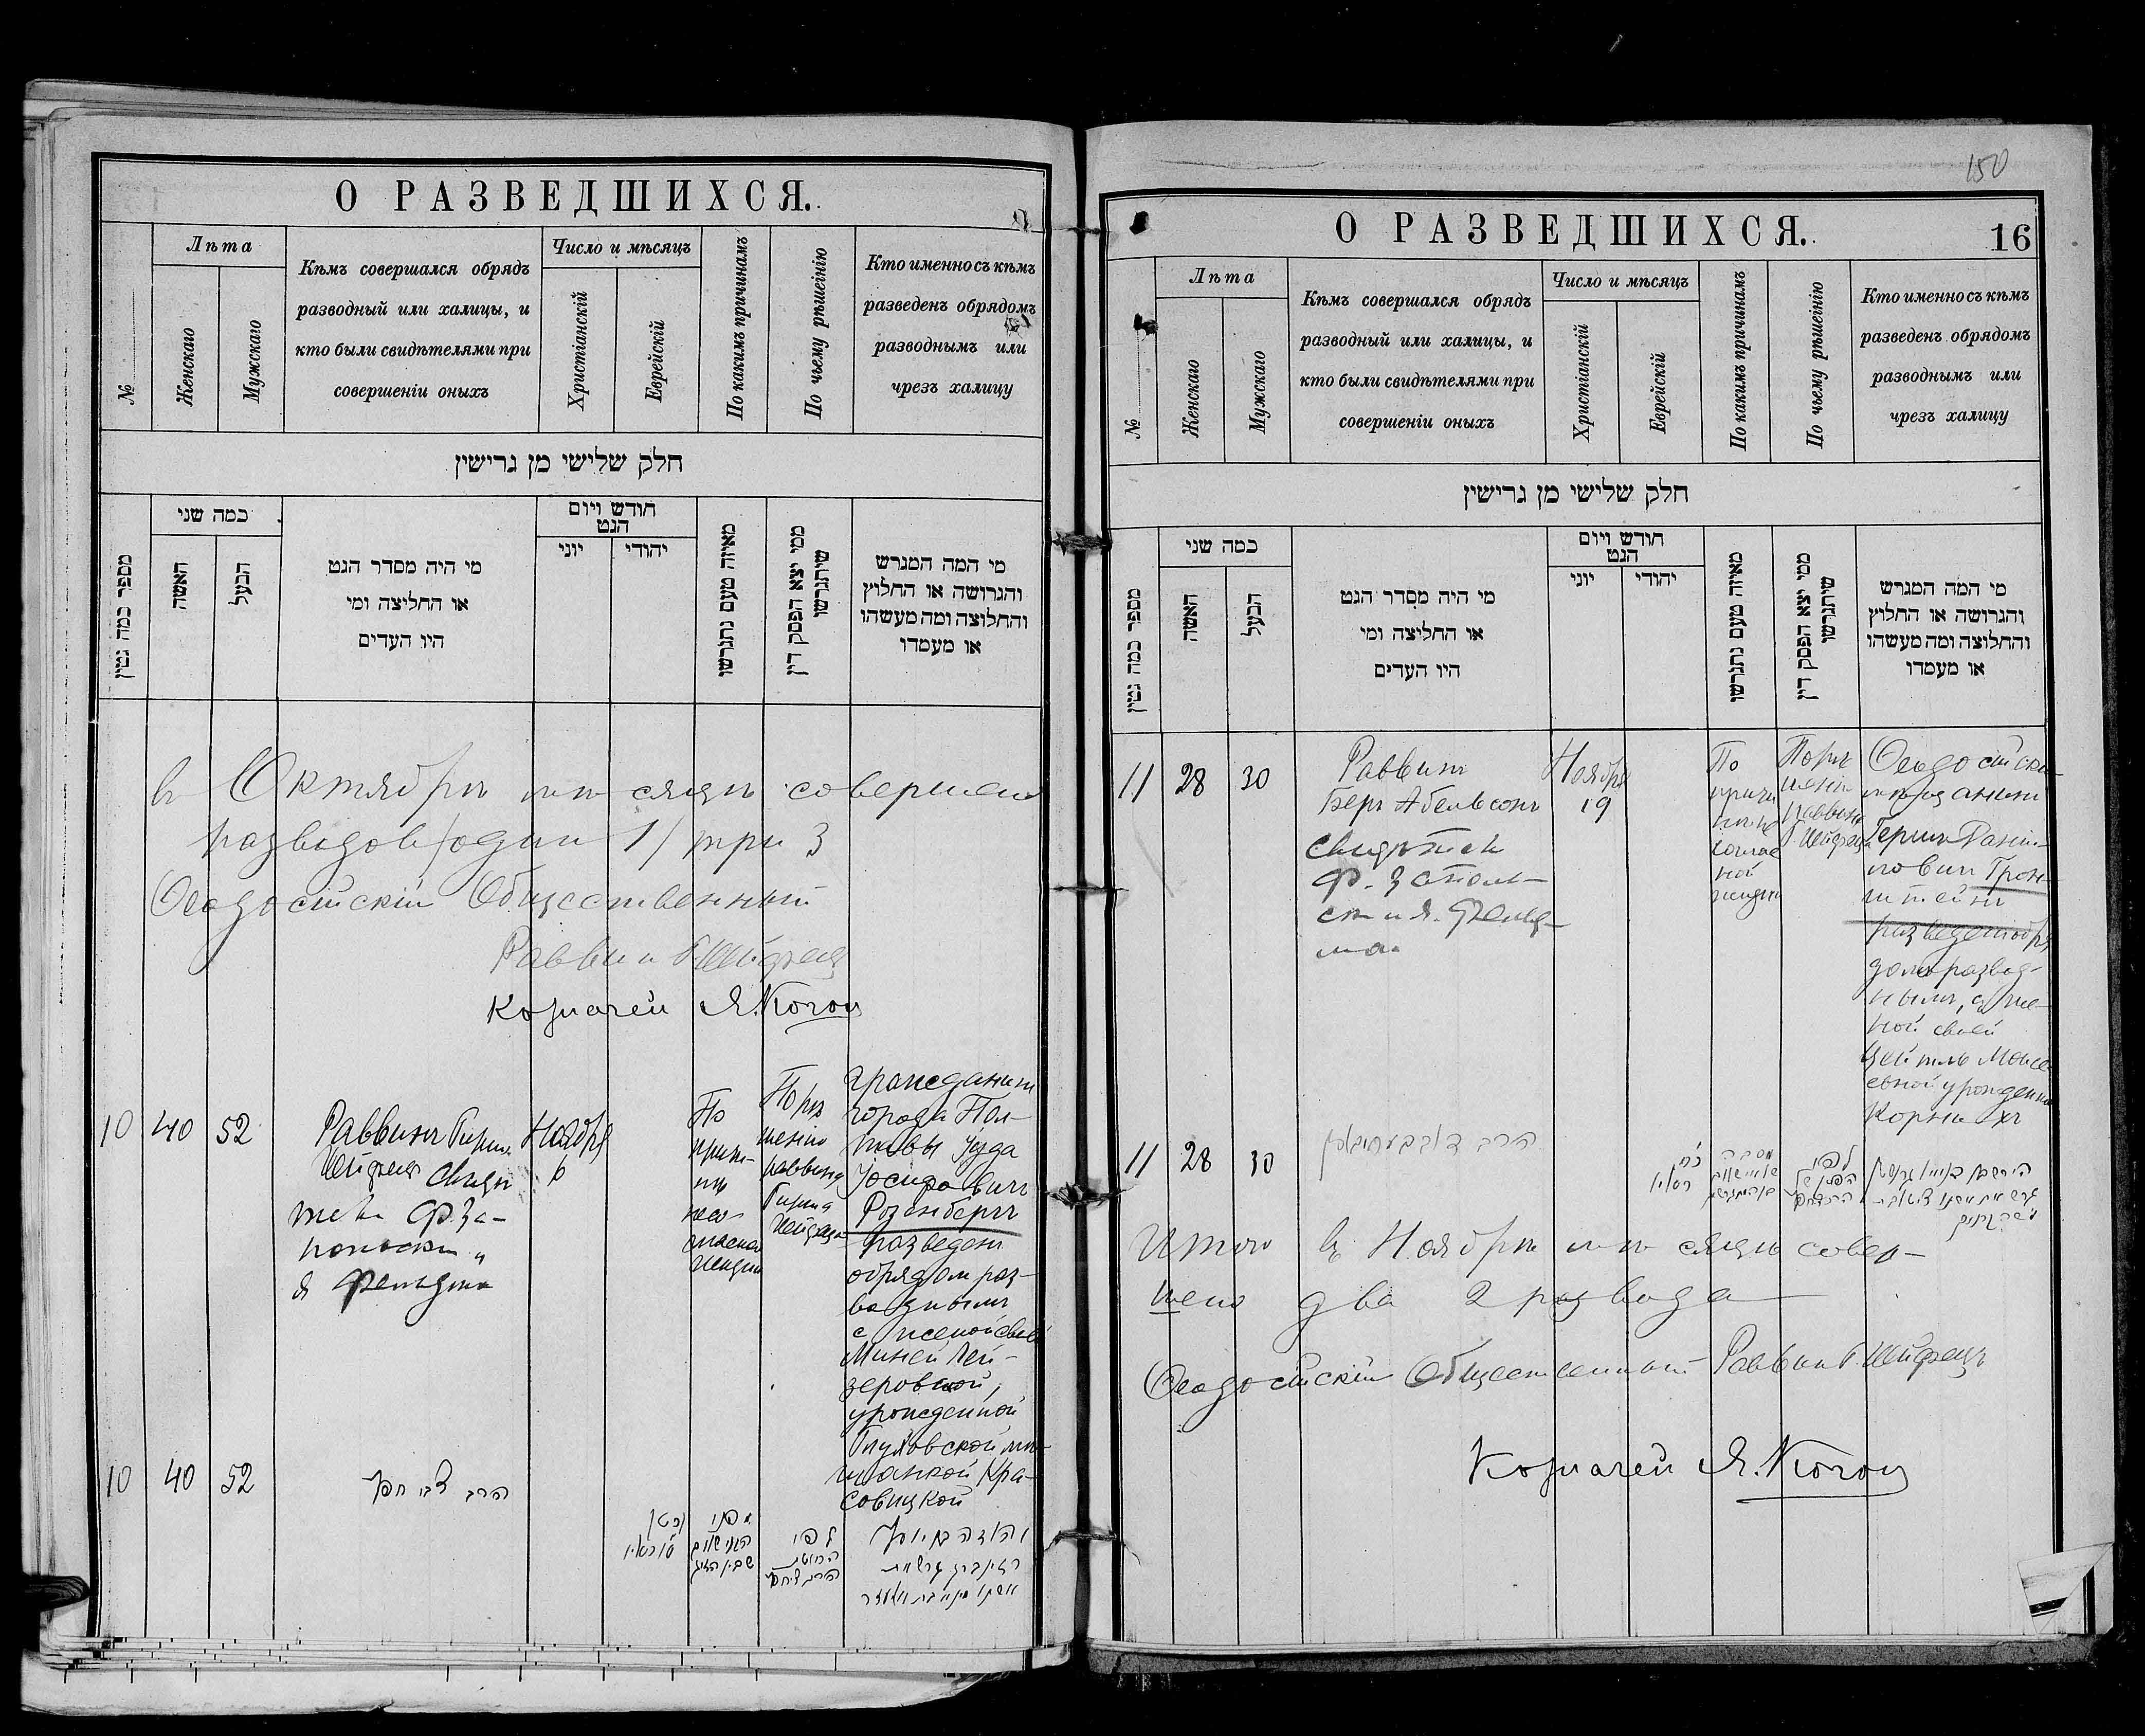 О РАЗВЕДШИХСЯ.
№
Лѣта
Женскаго
Мужскаго
Кѣмъ совершался обрядъ
разводный или халицы, и
кто были свидѣтелями при
совершеніи оныхъ
Число и мѣсяцъ
Христіанскій
Еврейскій
По какимъ причинамъ
По чьему рѣшенію
Кто именно съ кѣмъ
разведенъ обрядомъ
разводнымъ или
чрезъ халицу
חלק שלישי מן גרישין
מספר כמה גטין
כמה שני
האשה
הבעל
מי היה מסדר הגט
או החליצה ומי
היו העדים
חודש ויום
הגט
יוני
יהודי
מאיזה טעם נתגרשו
ממי יצא הפסק דין
שיתגרשו
מי המה המגרש
והגרושה או החלוץ
והחלוצה ומה מעשהו
או מעמדו
в Октябрѣ мѣсяцѣ совершено
разводов /один 1/ три 3
Ѳеодосійскій Общественный
Раввин Г Шейфец
Казначей Я. Коган
10
40
52
Раввинъ Гирш
свиде
тели Ф. За-
польски
Я Фельдма
Ноября
6
По
причи-
нѣ
несо-
гласной
жизни
По рѣ
шенію
раввина
Гирша
гражданинъ
города Пол-
тавы Іуда
Іосифович
Розенбергъ
разведен
обрядом раз-
водным
с женой своей
Миней Лей-
зеровной,
урожденной
Глуховской мѣ-
щанкой Кра-
совицкой
10
40
52
הרב צבי חפץ
לפי
יהודה בן יוסף
ראזינברג גרש את
150
О РАЗВЕДШИХСЯ.
16
№
Лѣта
Женскаго
Мужскаго
Кѣмъ совершался обрядъ
разводный или халицы, и
кто были свидѣтелями при
совершеніи оныхъ
Число и мѣсяцъ
Христіанскій
Еврейскій
По какимъ причинамъ
По чьему рѣшенію
Кто именно съ кѣмъ
разведенъ обрядомъ
разводнымъ или
чрезъ халицу
חלק שלישי מן גרישין
מספר כמה גטין
כמה שני
האשה
הבעל
מי היה מסדר הגט
או החליצה ומי
היו העדים
חודש ויום
הגט
יוני
יהודי
מאיזה טעם נתגרשו
ממי יצא הפסק דין
שיתגרשו
מי המה המגרש
והגרושה או החלוץ
והחלוצה ומה מעשהו
או מעמדו
11
28
30
Раввинъ
Беръ Абельсонъ
свидѣтели
Ф. Заполь-
ски и Я. Фельд-
ман
Ноября
19
По
причи
нѣ не
соглас
ной
жизни
По рѣ
шенію
раввина
Г. Шейфеца
Ѳеодосійскій
мѣщанинъ
Гершъ Даніи-
лович Грон-
штейнъ
разведен обря
домъ развод-
нымъ, с же-
ной своей
Цейтль Моисе
евной урожденной
Корнихъ
11
28
30
הרב דוב בער
לפי
Итого въ Ноябрѣ мѣсяцѣ совер-
шено два 2 развода
Ѳеодосійскій Общественный Раввин Г. Шейфецъ
Казначей Я. Коган